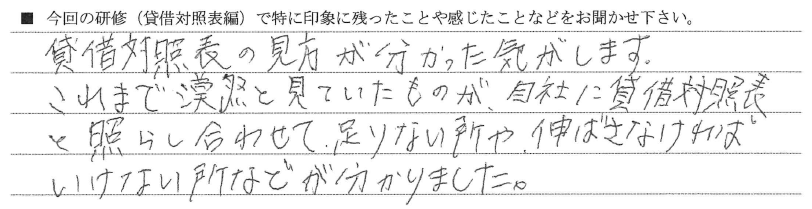 ■ 今回の研修（貸借対照表編）で特に印象に残ったことや感じたことなどをお聞かせ下さい。
貸借対照表の見方が分かった気がします。
これまで漠然と見ていたものが、自社に貸借対照表
と照らし合わせて、足りない所や、伸ばさなければ
いけない所などが分かりました。